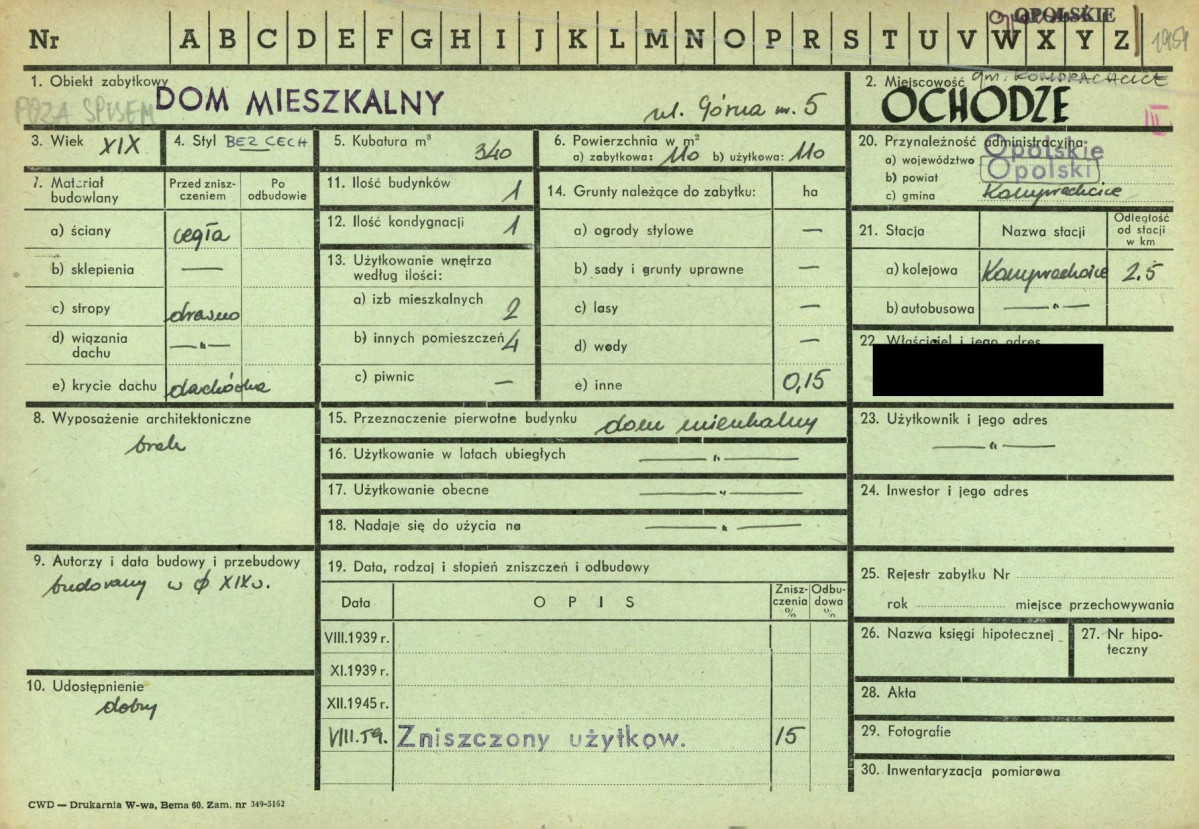 OPOLSKIE
Nr A B C D E F G H I J K L M N O P R S T U V W X Y Z 1959
1. Obiekt zabytkowy
POZA SPISEM
DOM MIESZKALNY ul. Górna nr. 5
2. Miejscowość gm. KOMPRACHCICE
OCHODZE
III
3. Wiek XIX
4. Styl BEZ CECH
5. Kubatura m³ 340
6. Powierzchnia w m²
a) zabytkowa: 110 b) użytkowa: 110
7. Materiał budowlany
Przed zniszczeniem
Po odbudowie
a) ściany cegła
b) sklepienia —
c) stropy drewno
d) wiązania dachu —„—
e) krycie dachu dachówka
8. Wyposażenie architektoniczne
brak
9. Autorzy i data budowy i przebudowy
budowany w ϕ XIX w.
10. Udostępnienie
dobry
11. Ilość budynków 1
12. Ilość kondygnacji 1
13. Użytkowanie wnętrza
według ilości:
a) izb mieszkalnych 2
b) innych pomieszczeń 4
c) piwnic —
14. Grunty należące do zabytku: ha
a) ogrody stylowe —
b) sady i grunty uprawne —
c) lasy —
d) wody —
e) inne 0,15
15. Przeznaczenie pierwotne budynku dom mieszkalny
16. Użytkowanie w latach ubiegłych —„—
17. Użytkowanie obecne —„—
18. Nadaje się do użycia na —„—
19. Data, rodzaj i stopień zniszczeń i odbudowy
Data OPIS Zniszczenia % Odbudowa %
VIII.1939 r.
XI.1939 r.
XII.1945 r.
VIII.59. Zniszczony użytkow. 15
20. Przynależność administracyjna
a) województwo Opolskie
b) powiat Opolski
c) gmina Komprachcice
21. Stacja Nazwa stacji Odległość od stacji w km
a) kolejowa Komprachcice 2.5
b) autobusowa —„—
22. Właściciel i jego adres
23. Użytkownik i jego adres
—„—
24. Inwestor i jego adres
25. Rejestr zabytku Nr
rok miejsce przechowywania
26. Nazwa księgi hipotecznej
27. Nr hipoteczny
28. Akta
29. Fotografie
30. Inwentaryzacja pomiarowa
CWD — Drukarnia W-wa, Bema 60. Zam. nr 349-5162